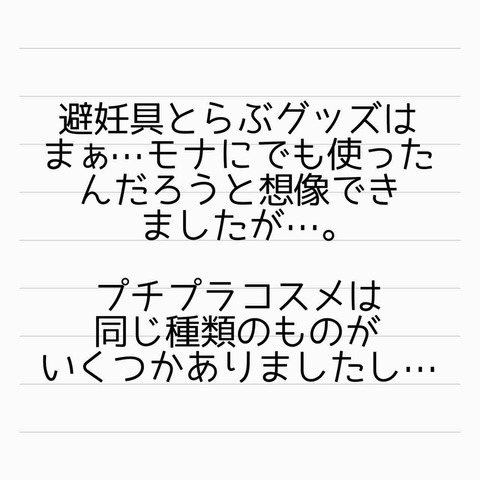 避妊具とらぶグッズは
まぁ…モナにでも使った
んだろうと想像でき
ましたが…。
プチプラコスメは
同じ種類のものが
いくつかありましたし…